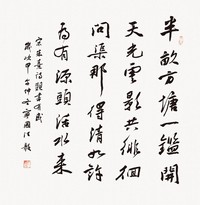 半畝方塘一鑑開
天光雲影共徘徊
問渠那得清如許
為有源頭活水来
宋朱熹詩觀書有感
歲次甲午仲冬